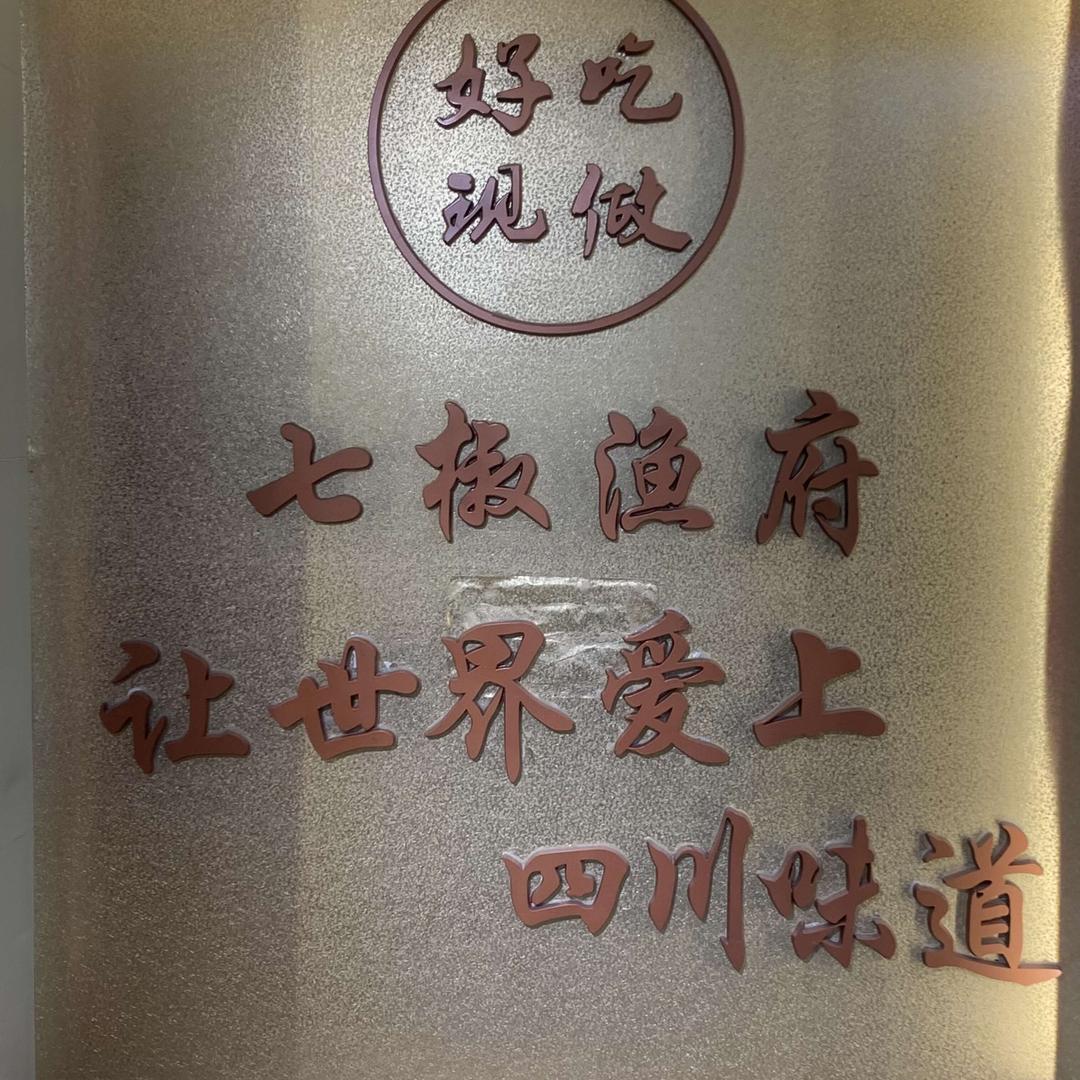 好吃
现做
七椒渔府
让世界爱上
四川味道